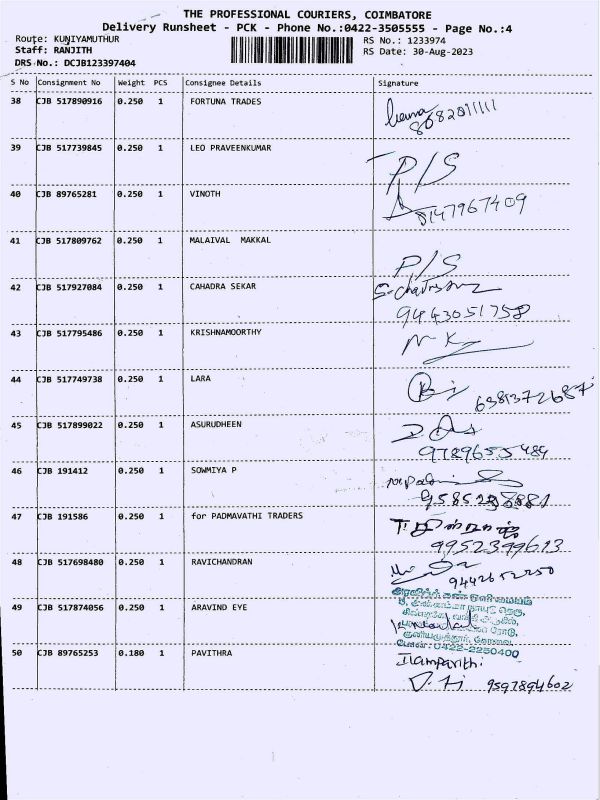 THE PROFESSIONAL COURIERS, COIMBATORE
Delivery Runsheet - PCK - Phone No.:0422-3505555 - Page No.:4
Route: KUNIYAMUTHUR RS No.: 1233974
Staff: RANJITH RS Date: 30-Aug-2023
DRS No.: DCJB123397404
S No Consignment No Weight PCS Consignee Details Signature
38 CJB 517890916 0.250 1 FORTUNA TRADES
8682011111
39 CJB 517739845 0.250 1 LEO PRAVEENKUMAR P/S
40 CJB 89765281 0.250 1 VINOTH
8147967409
41 CJB 517809762 0.250 1 MALAIVAL MAKKAL P/S
42 CJB 517927084 0.250 1 CAHADRA SEKAR
9443051758
43 CJB 517795486 0.250 1 KRISHNAMOORTHY
44 CJB 517749738 0.250 1 LARA
6381372687
45 CJB 517899022 0.250 1 ASURUDHEEN
9789655484
46 CJB 191412 0.250 1 SOWMIYA P
47 CJB 191586 0.250 1 for PADMAVATHI TRADERS
9952399613
48 CJB 517698480 0.250 1 RAVICHANDRAN
9442652250
49 CJB 517874056 0.250 1 ARAVIND EYE
அரவிந்த் கண் ஒளி மையம்
குனியமுத்தூர், கோவை.
போன் : 0422-2250400
50 CJB 89765253 0.180 1 PAVITHRA
9597894602